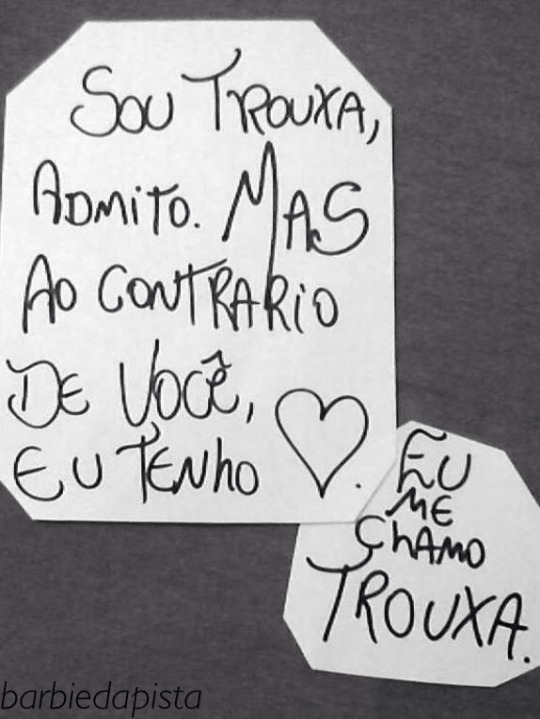 SOU TROUXA,
ADMITO. MAS
AO CONTRARIO
DE VOCÊ,
EU TENHO ♡.
EU
ME
CHAMO
TROUXA.
barbiedapista